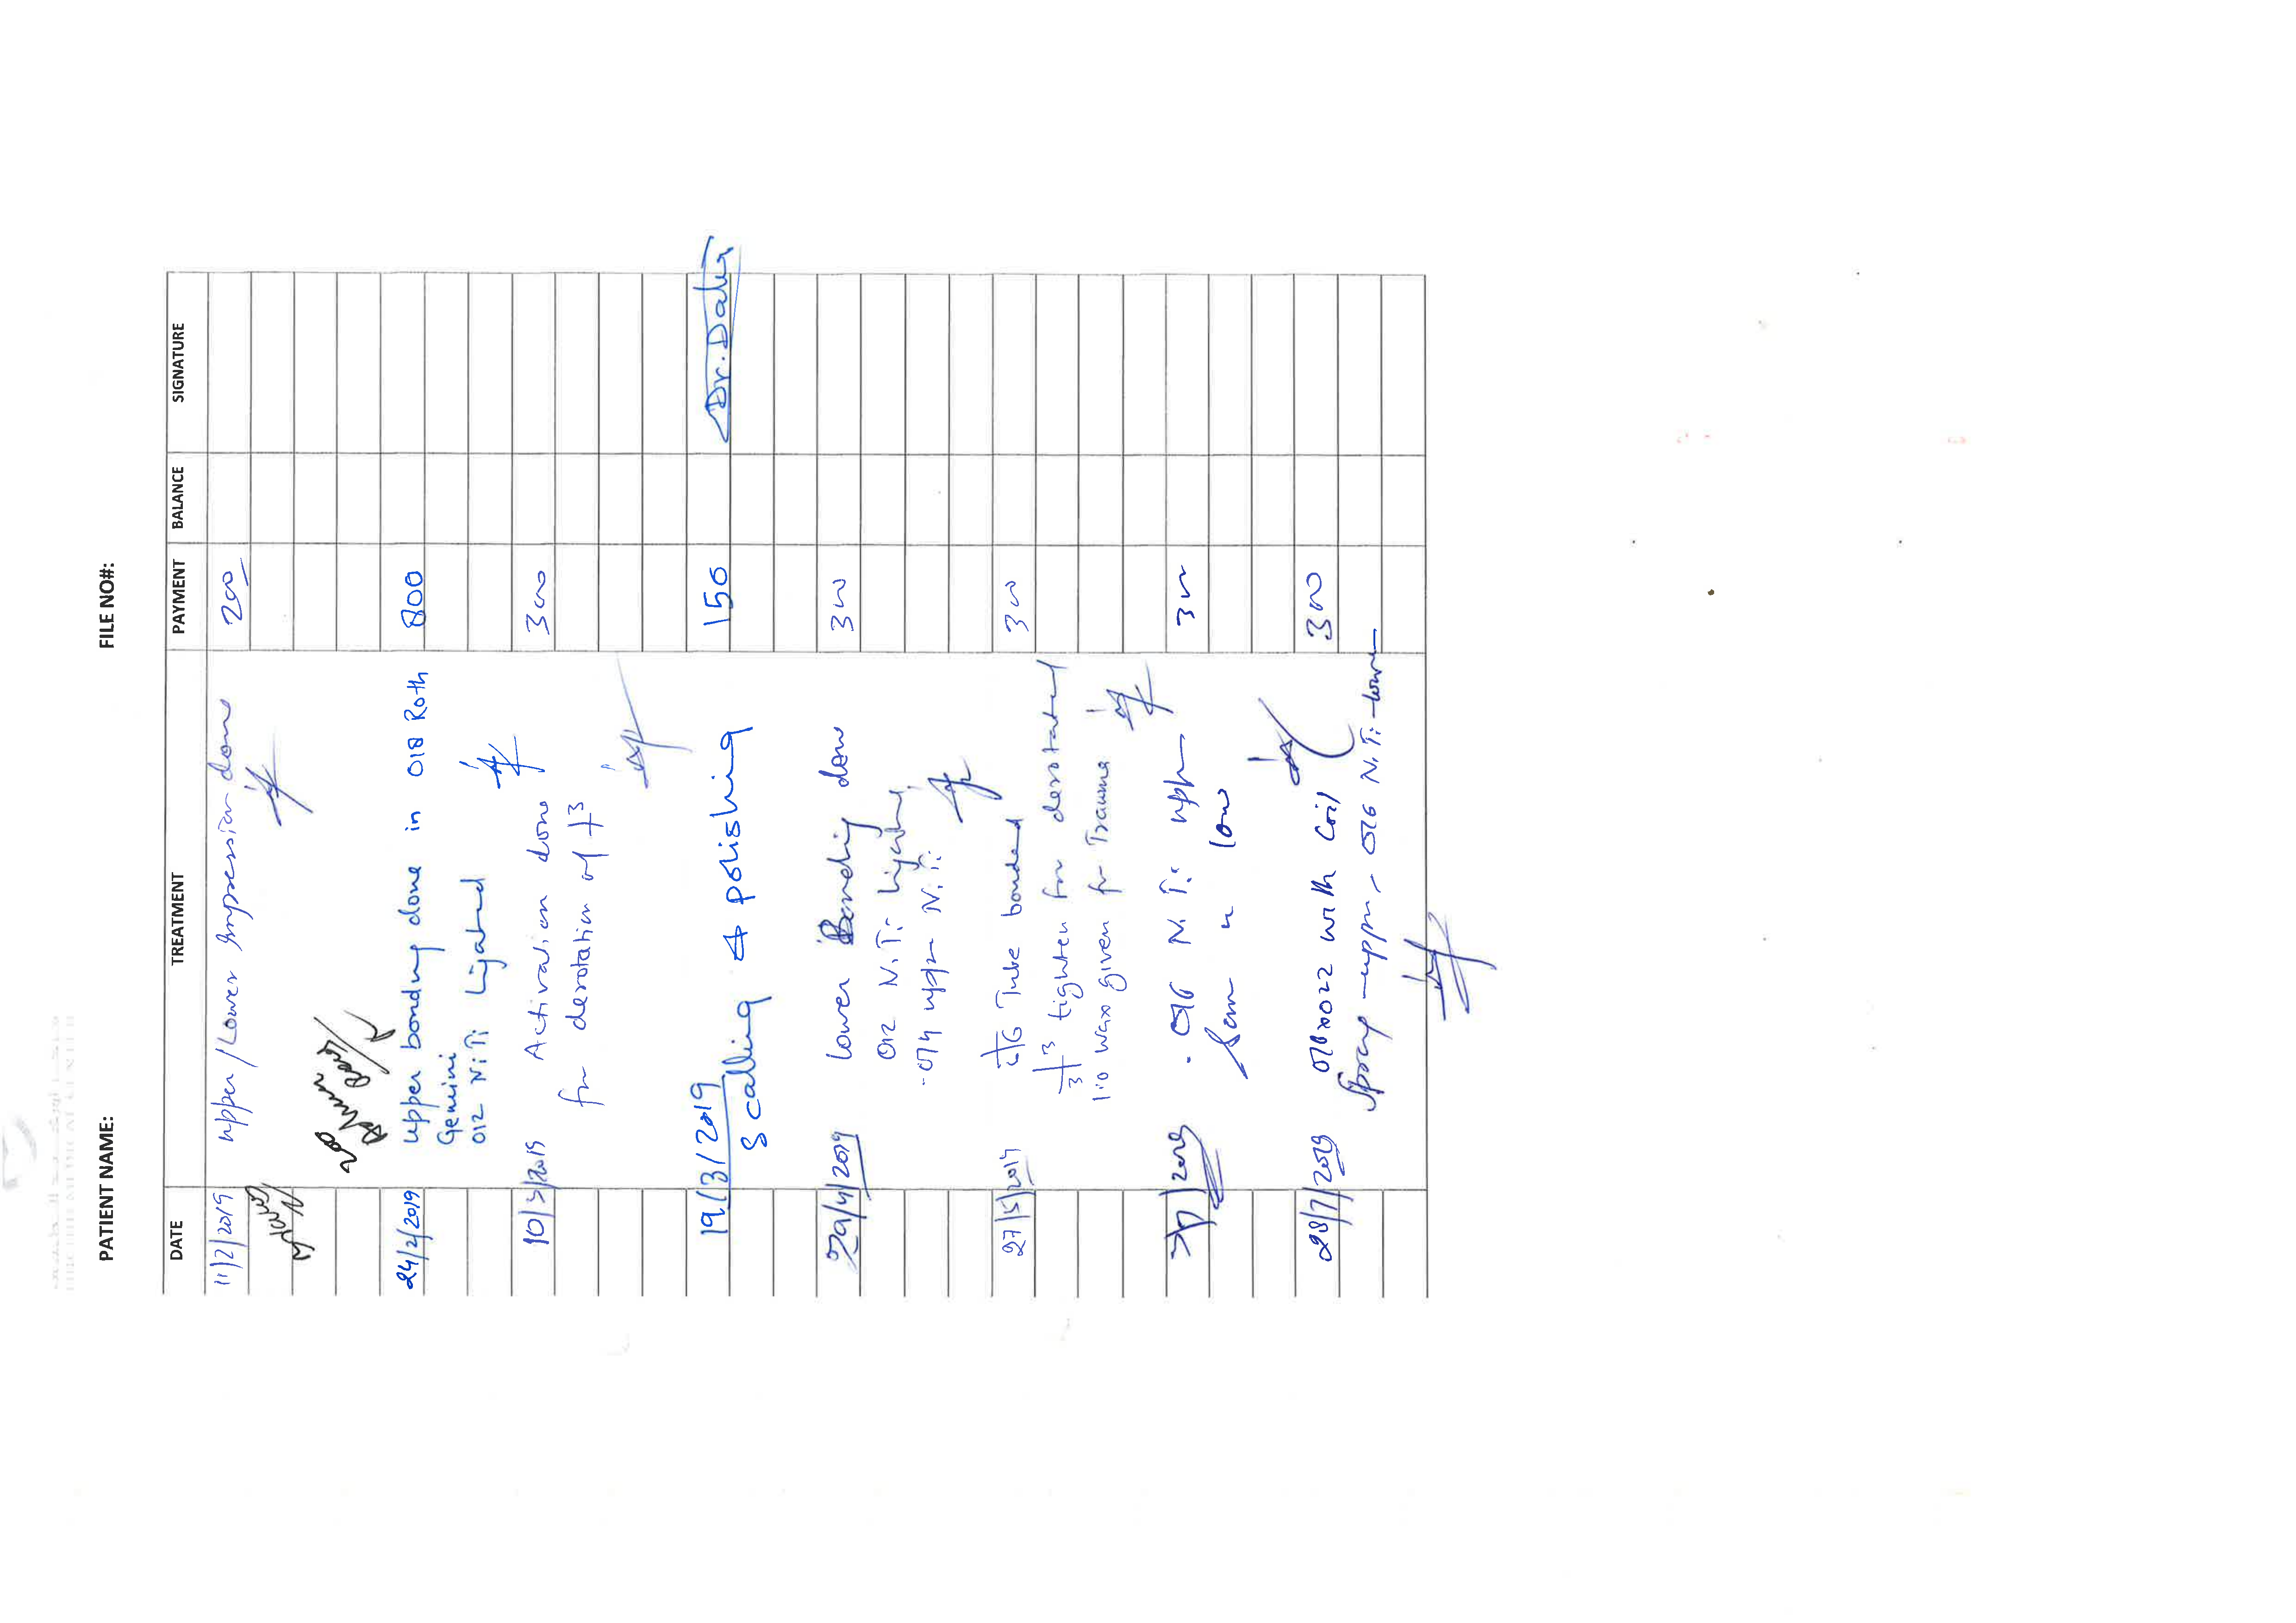 PATIENT NAME: FILE NO#:
DATE TREATMENT PAYMENT BALANCE SIGNATURE
11/2/2019 Upper/Lower Impression done 200
24/2/2019 Upper bonding done in 018 Roth 800
Gemini
012 NiTi Ligated
10/3/2019 Activation done 300
for derotation of 3
19/3/2019 150 Dr. Daher
Scalling & polishing
29/4/2019 Lower Bonding done 300
012 NiTi Ligated
- 014 upper NiTi
27/5/2019 6 Tube bonded 300
3 3 tighten for derotated
1 io wax given for Trauma
2019 . 016 NiTi upper 300
Sem " low
28/7/2019 016x022 with coil 300
Spray - upper, - 016 NiTi - lower